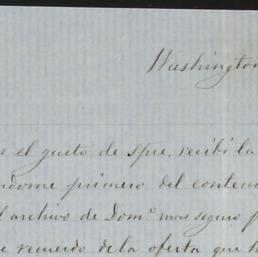 Washington
el gusto de spre, recibi la
ndome primero del conteni
l archivo de Dom.º mas seguro p
e recuerdo de la oferta que h